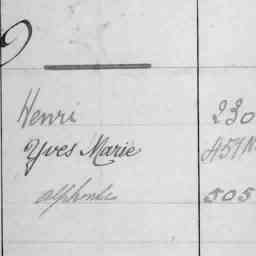 Henri 230
Yves Marie 457 N
alphonse 505